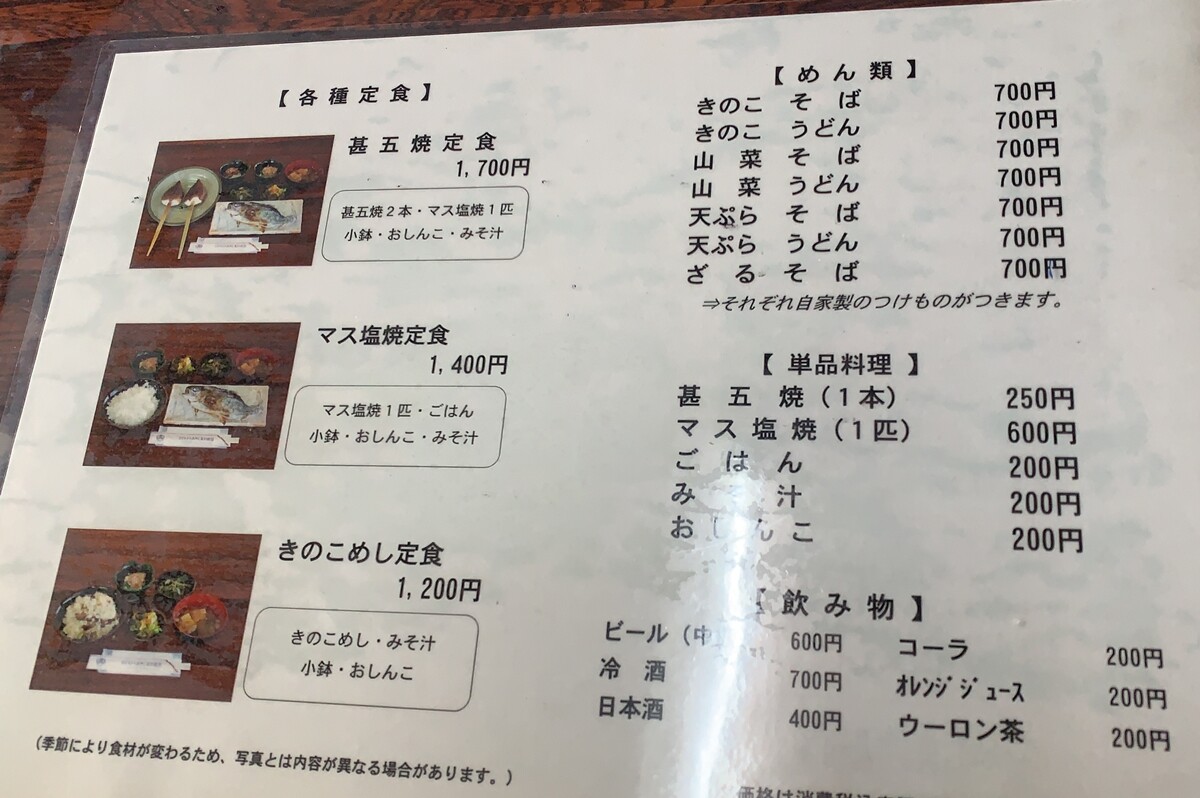 【各種定食】
甚五焼定食
1,700円
甚五焼2本・マス塩焼1匹
小鉢・おしんこ・みそ汁
マス塩焼定食
1,400円
マス塩焼1匹・ごはん
小鉢・おしんこ・みそ汁
きのこめし定食
1,200円
きのこめし・みそ汁
小鉢・おしんこ
(季節により食材が変わるため、写真とは内容が異なる場合があります。)
【めん類】
きのこ そば 700円
きのこ うどん 700円
山菜 そば 700円
山菜 うどん 700円
天ぷら そば 700円
天ぷら うどん 700円
ざるそば 700円
⇒それぞれ自家製のつけものがつきます。
【単品料理】
甚五焼(1本) 250円
マス塩焼(1匹) 600円
ごはん 200円
みそ汁 200円
おしんこ 200円
【飲み物】
ビール(中 600円
冷酒 700円
日本酒 400円
コーラ 200円
オレンジジュース 200円
ウーロン茶 200円
価格は消費税込